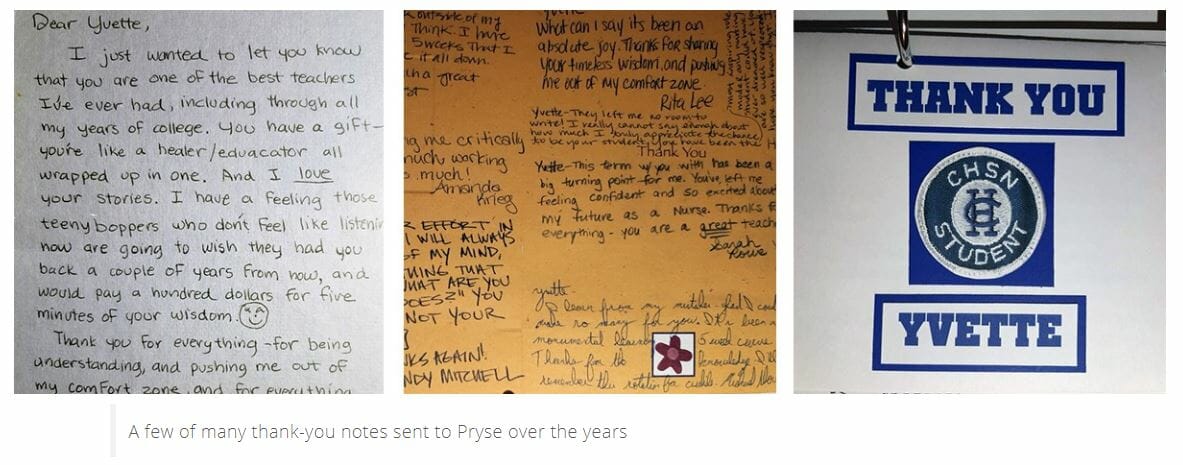 Dear Yvette,
I just wanted to let you know
that you are one of the best teachers
I've ever had, including through all
my years of college. You have a gift-
you're like a healer/eduacator all
wrapped up in one. And I love
your stories. I have a feeling those
teeny boppers who don't feel like listenin
now are going to wish they had you
back a couple of years from now, and
would pay a hundred dollars for five
minutes of your wisdom.
Thank you for everything - for being
understanding, and pushing me out of
my comfort zone, and for everything
outside of my
Think. I have
5 weeks That I
it all down.
a great
What can I say its been an
absolute joy. Thanks for sharing
your timeless wisdom, and pushing
me out of my comfort zone.
Rita Lee
Yvette - They left me no room to
write! I really cannot say enough about
how much I truly appreciate the chance
to be your student. You have been the
Thank You
ng me critically
much working
much!
Amanda
Krieg
Yvette - This term w/ you with has been a
big turning point for me. You've left me
feeling confident and so excited about
my future as a Nurse. Thanks f
everything - you are a great teach
Sarah
Rowe
EFFORT IN
I WILL ALWAYS
OF MY MIND,
THING THAT
WHAT ARE YOU
DOES?" YOU
NOT YOUR
KS AGAIN!
NDY MITCHELL
yvette-
learn from my
make so many for you. It's been a
monumental 5 week curve
Thanks for the knowledge
remember the
THANK YOU
CHSN
CH
STUDENT
YVETTE
A few of many thank-you notes sent to Pryse over the years